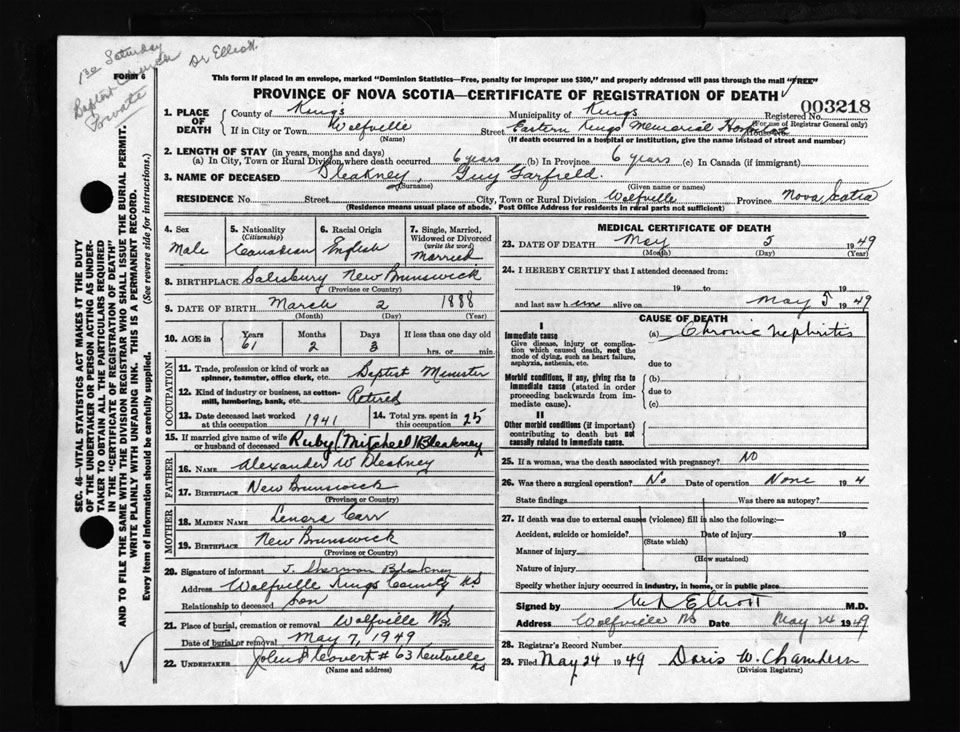 1st Saturday
Baptist Church
Private
Dr Elliott
FORM 6
This form if placed in an envelope, marked "Dominion Statistics—Free, penalty for improper use $300," and properly addressed will pass through the mail "FREE"
PROVINCE OF NOVA SCOTIA—CERTIFICATE OF REGISTRATION OF DEATH
003218
1. PLACE OF DEATH
County of Kings
Municipality of Kings
Registered No.
(For use of Registrar General only)
If in City or Town Wolfville
(Name)
Street Eastern Kings Memorial Hospital House No.
(If death occurred in a hospital or institution, give the name instead of street and number)
2. LENGTH OF STAY (in years, months and days)
(a) In City, Town or Rural Division where death occurred 6 years (b) In Province 6 years (c) In Canada (if immigrant)
3. NAME OF DECEASED Bleakney, Guy Garfield.
(Surname) (Given name or names)
RESIDENCE No. Street City, Town or Rural Division Wolfville Province Nova Scotia
(Residence means usual place of abode. Post Office Address for residents in rural parts not sufficient)
4. Sex
Male
5. Nationality
(Citizenship)
Canadian
6. Racial Origin
English
7. Single, Married, Widowed or Divorced
(write the word)
Married
8. BIRTHPLACE Salisbury New Brunswick
(Province or Country)
9. DATE OF BIRTH March 2 1888
(Month) (Day) (Year)
10. AGE in
Years Months Days If less than one day old
61 2 3 hrs. or min.
OCCUPATION
11. Trade, profession or kind of work as spinner, teamster, office clerk, etc. Baptist Minister
12. Kind of industry or business, as cotton-mill, lumbering, bank, etc. Retired
13. Date deceased last worked at this occupation 1941
14. Total yrs. spent in this occupation 25
15. If married give name of wife or husband of deceased Ruby (Mitchell) Bleakney
FATHER
16. NAME Alexander W Bleakney
17. BIRTHPLACE New Brunswick
(Province or Country)
MOTHER
18. MAIDEN NAME Lenora Carr
19. BIRTHPLACE New Brunswick
(Province or Country)
20. Signature of informant J. Sherman Bleakney
Address Wolfville Kings County NS
Relationship to deceased son
21. Place of burial, cremation or removal Wolfville NS.
Date of burial or removal May 7, 1949
22. UNDERTAKER John Covert # 63 Kentville NS
(Name and address)
MEDICAL CERTIFICATE OF DEATH
23. DATE OF DEATH May 5 1949
(Month) (Day) (Year)
24. I HEREBY CERTIFY that I attended deceased from:
19 to 19
and last saw him alive on May 5 1949
CAUSE OF DEATH
I
Immediate cause
Give disease, injury or complication which caused death, not the mode of dying, such as heart failure, asphyxia, asthenia, etc.
(a) Chronic Nephritis
due to
Morbid conditions, if any, giving rise to immediate cause (stated in order proceeding backwards from immediate cause).
(b)
due to
(c)
II
Other morbid conditions (if important) contributing to death but not causally related to immediate cause.
25. If a woman, was the death associated with pregnancy? No
26. Was there a surgical operation? No Date of operation None 194
State findings Was there an autopsy?
27. If death was due to external causes (violence) fill in also the following:—
Accident, suicide or homicide? Date of injury 19
(State which)
Manner of injury
(How sustained)
Nature of injury
Specify whether injury occurred in industry, in home, or in public place
Signed by Elliott M.D.
Address Wolfville NS Date May 24 1949
28. Registrar's Record Number
29. Filed May 24 1949 Doris W. Chambers
(Division Registrar)
SEC. 46—VITAL STATISTICS ACT MAKES IT THE DUTY
OF THE UNDERTAKER OR PERSON ACTING AS UNDER-
TAKER TO OBTAIN ALL THE PARTICULARS REQUIRED
IN THE "CERTIFICATE OF REGISTRATION OF DEATH"
AND TO FILE THE SAME WITH THE DIVISION REGISTRAR WHO SHALL ISSUE THE BURIAL PERMIT.
WRITE PLAINLY WITH UNFADING INK. THIS IS A PERMANENT RECORD.
Every item of Information should be carefully supplied. (See reverse side for instructions.)